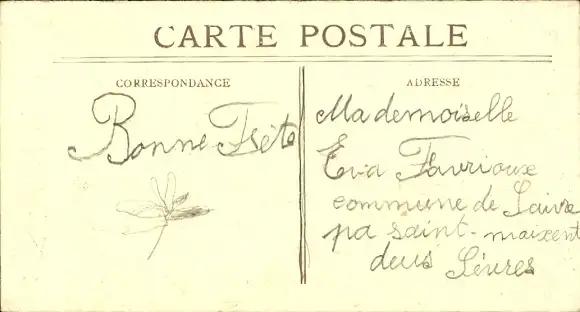 CARTE POSTALE
CORRESPONDANCE
Bonne Fête
ADRESSE
Mademoiselle
Eva Favrioux
commune de Saivre
pa saint-maixent
deus Sévres